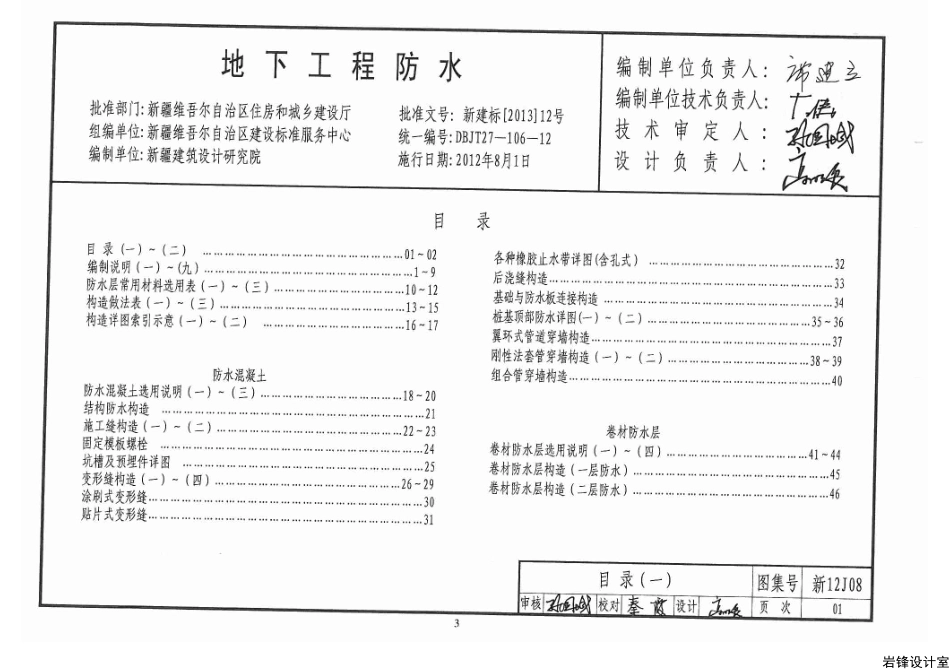 地下工程防水
批准部门:新疆维吾尔自治区住房和城乡建设厅
组编单位:新疆维吾尔自治区建设标准服务中心
编制单位:新疆建筑设计研究院
批准文号: 新建标[2013]12号
统一编号:DBJT27—106—12
施行日期:2012年8月1日
编制单位负责人:
编制单位技术负责人:
技术审定人:
设计负责人:
目 录
目 录 (一) ~ (二) ……………………………01~02
编制说明 (一) ~ (九) ……………………………1~9
防水层常用材料选用表 (一) ~ (三) ……………………10~12
构造做法表 (一) ~ (三) ……………………………13~15
构造详图索引示意 (一) ~ (二) ……………………16~17
防水混凝土
防水混凝土选用说明 (一) ~ (三) ……………………18~20
结构防水构造 ……………………………21
施工缝构造 (一) ~ (二) ……………………………22~23
固定模板螺栓 ……………………………24
坑槽及预埋件详图 ……………………………25
变形缝构造 (一) ~ (四) ……………………………26~29
涂刷式变形缝……………………………30
贴片式变形缝……………………………31
各种橡胶止水带详图(含孔式) ……………………32
后浇缝构造……………………………33
基础与防水板连接构造 ……………………………34
桩基顶部防水详图(一) ~ (二) ……………………35~36
翼环式管道穿墙构造……………………………37
刚性法套管穿墙构造 (一) ~ (二) ……………………38~39
组合管穿墙构造……………………………40
卷材防水层
卷材防水层选用说明 (一) ~ (四) ……………………41~44
卷材防水层构造 (一层防水) ……………………45
卷材防水层构造 (二层防水) ……………………46
目 录 (一) 图集号 新12J08
审核 校对 秦 设计 页 次 01
3
岩锋设计室